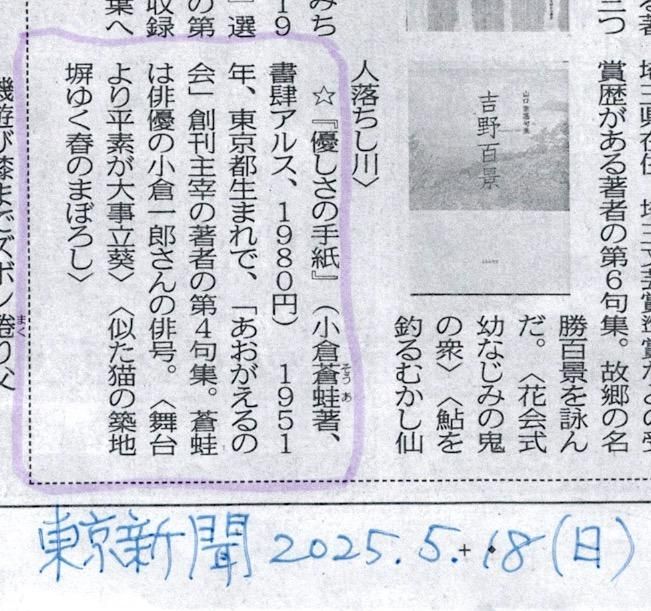 る著
三つ
賞歴がある著者の第6句集。故郷の名
勝百景を詠ん
だ。〈花会式
幼なじみの鬼
の衆〉〈鮎を
釣るむかし仙
人落ちし川〉
吉野百景
みち
19
」選
の第
収録
葉へ
☆『優しさの手紙』（小倉蒼蛙著、
そうあ
書肆アルス、1980円） 1951
年、東京都生まれで、「あおがえるの
会」創刊主宰の著者の第4句集。蒼蛙
は俳優の小倉一郎さんの俳号。〈舞台
より平素が大事立葵〉〈似た猫の築地
塀ゆく春のまぼろし〉
遊び膝までズボン捲り父
まく
東京新聞 2025.5.18(日)